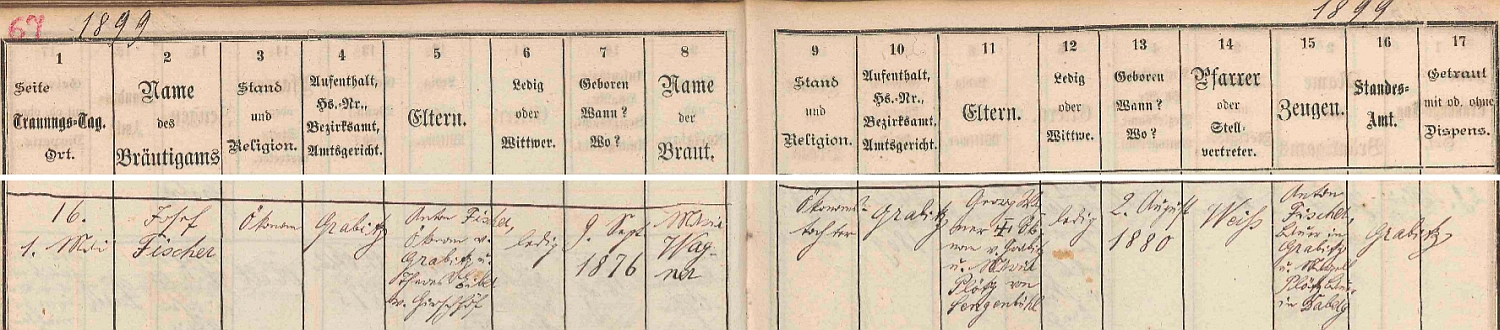 67 1899
1899
1
Seite
Trauungs-Tag.
Ort.
2
Name
des
Bräutigams
3
Stand
und
Religion.
4
Aufenthalt,
Hs.-Nr.,
Bezirksamt,
Amtsgericht.
5
Eltern.
6
Ledig
oder
Wittwer.
7
Geboren
Wann?
Wo?
8
Name
der
Braut.
9
Stand
und
Religion.
10
Aufenthalt,
Hs.-Nr.,
Bezirksamt,
Amtsgericht.
11
Eltern.
12
Ledig
oder
Wittwe.
13
Geboren
Wann?
Wo?
14
Pfarrer
oder
Stell-
vertreter.
15
Zeugen.
16
Standes-
Amt.
17
Getraut
mit od. ohne
Dispens.
16.
1. Mai
Josef
Fischer
Ökonom
Grabitz
Anton Fischer,
Ökonom v.
Grabitz u.
v.
ledig
9. Sept.
1876
Maria
Wag-
ner
Ökonoms-
tochter
Grabitz
Georg
Öko-
nom v. Grabitz
u. Maria
Plötz von
Lengenbühl
ledig
2. August
1880
Weiß
Anton
Fischer,
Bauer in
Grabitz
u.
Plötz
in
Grabitz